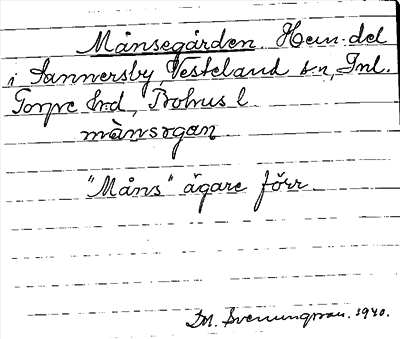 Månsegården. Hem.del
i Sannersby, Vesteland sn, Inl.
Torpe hd, Bohus l.
månsogan
"Måns" ägare förr.
D.A. Svenungsson. 1940.